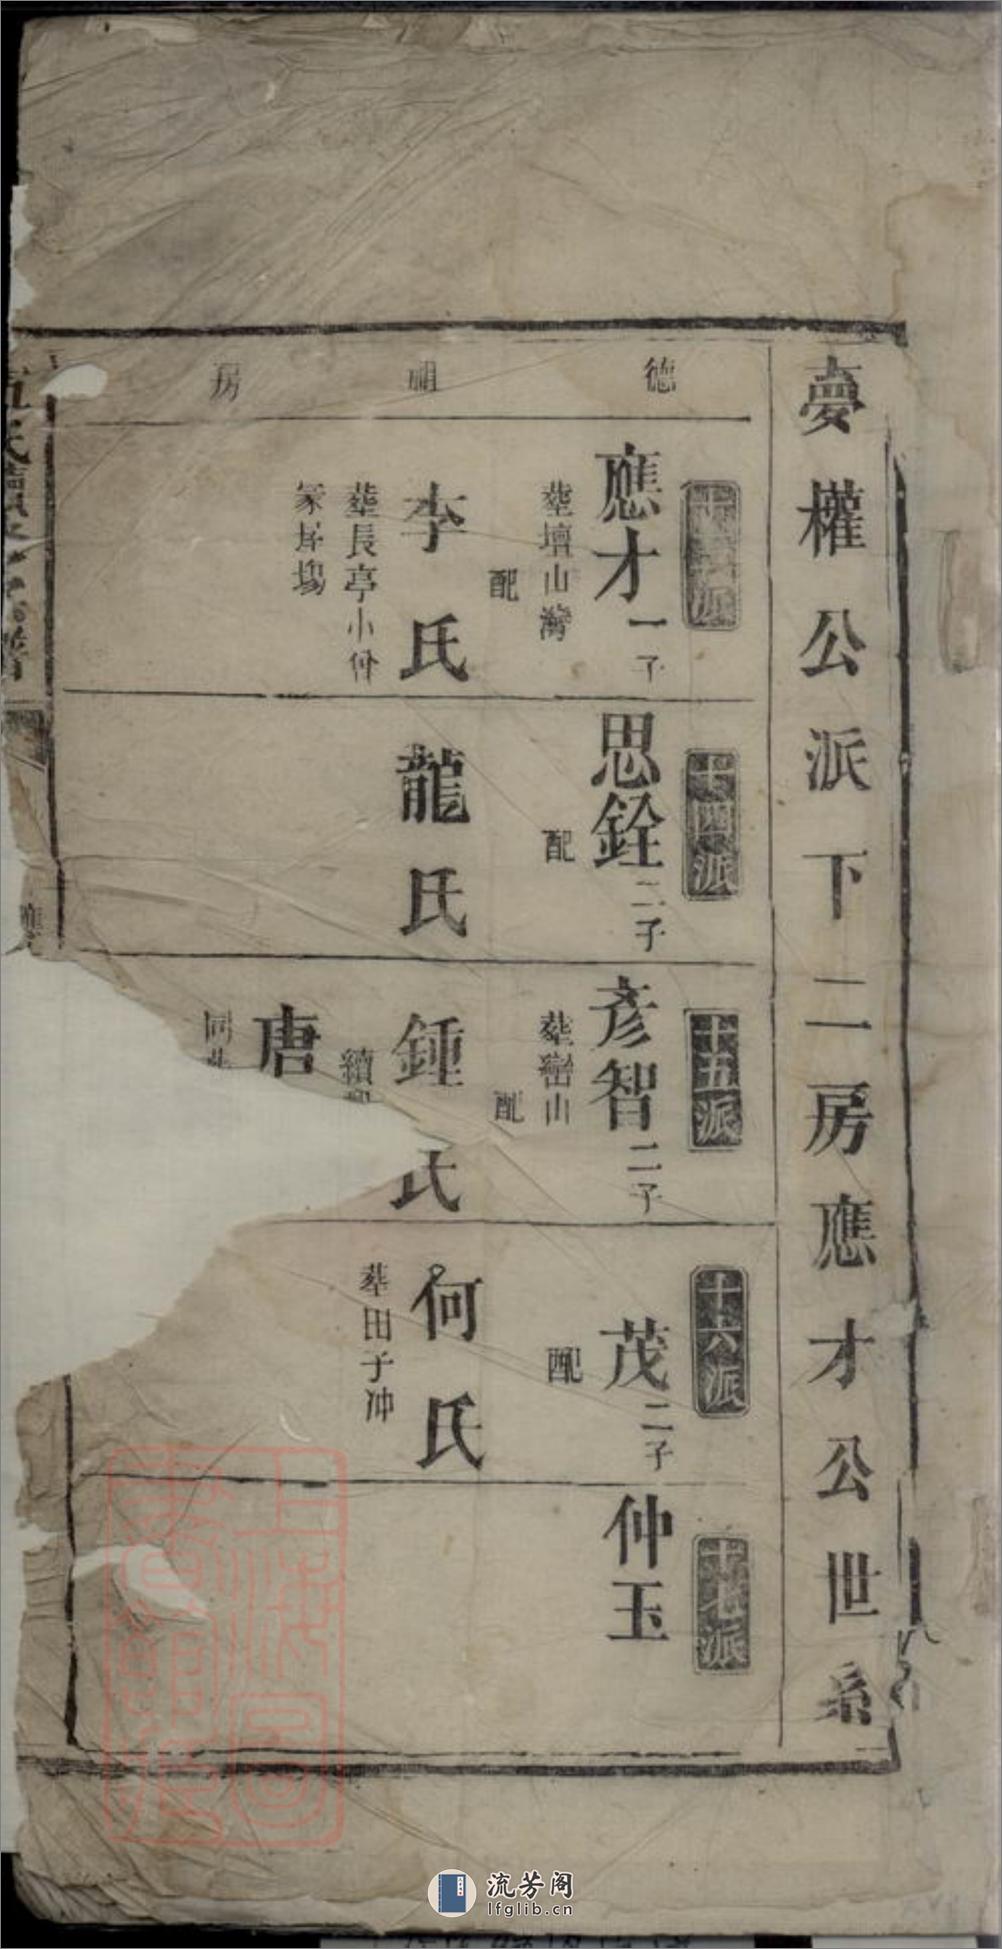 夢權公派下二房應才公世系
德祖房
十三派
應才一子
葬壇山灣
配
李氏
葬長亭小沖
家屋塝
十四派
思銓二子
配
龍氏
十五派
彥智二子
葬巒山
配
鍾氏
續
唐
同葬
十六派
茂二子
配
何氏
葬田子冲
十七派
仲玉
氏續修宗譜
流芳阁
lfglib.cn